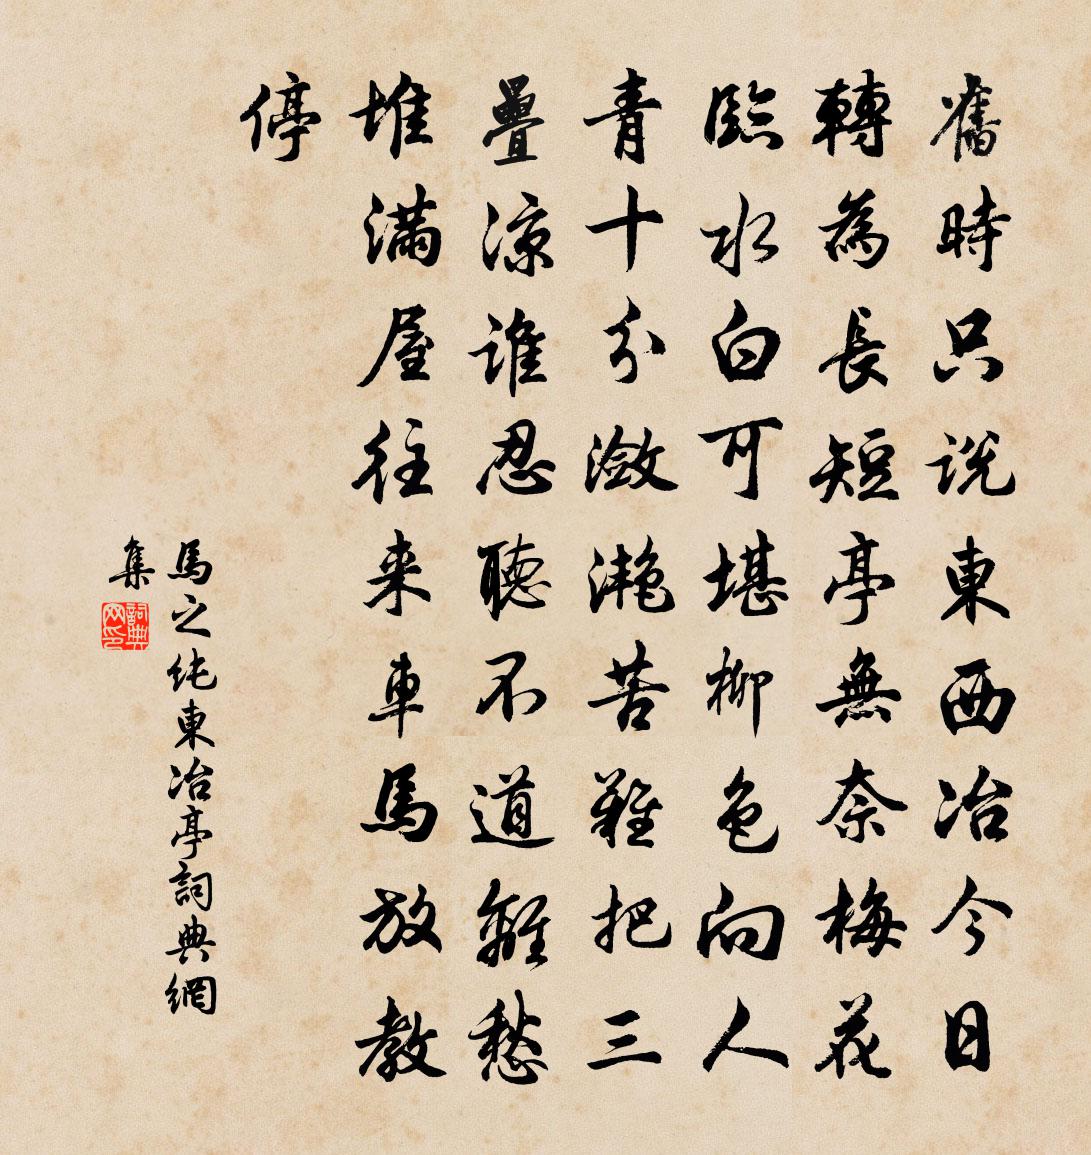 舊時只說東西冶今日
轉為長短亭無奈梅花
臨水白可堪柳色向人
青十分瀲灔苦難把三
疊涼誰忍聽不道離愁
堆滿屋往来車馬放教
停
馬之純東冶亭詞典網
集
詞典
网印